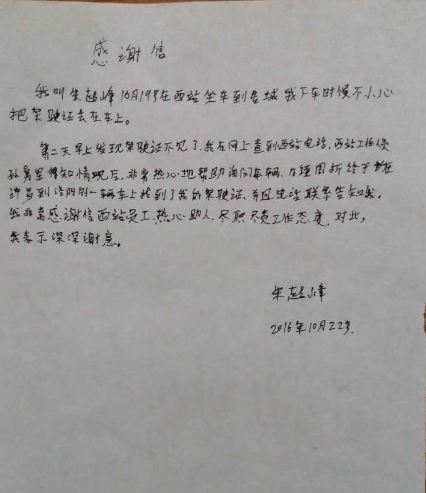 感谢信
我叫朱超峰10月19号在西站坐车到晋城我下车时候不小心
把驾驶证丢在车上。
第二天早上发现驾驶证不见了,我在网上查到西站电话,西站工作人员
得知情况后,非常热心地帮助询问车辆,几经周折终于在
到洛阳的一辆车上找到了我的驾驶证,并且电话联系告知我。
我非常感谢信西站员工,热心助人,尽职尽责工作态度,对此,
我表示深深谢意。
朱超峰
2016年10月22号